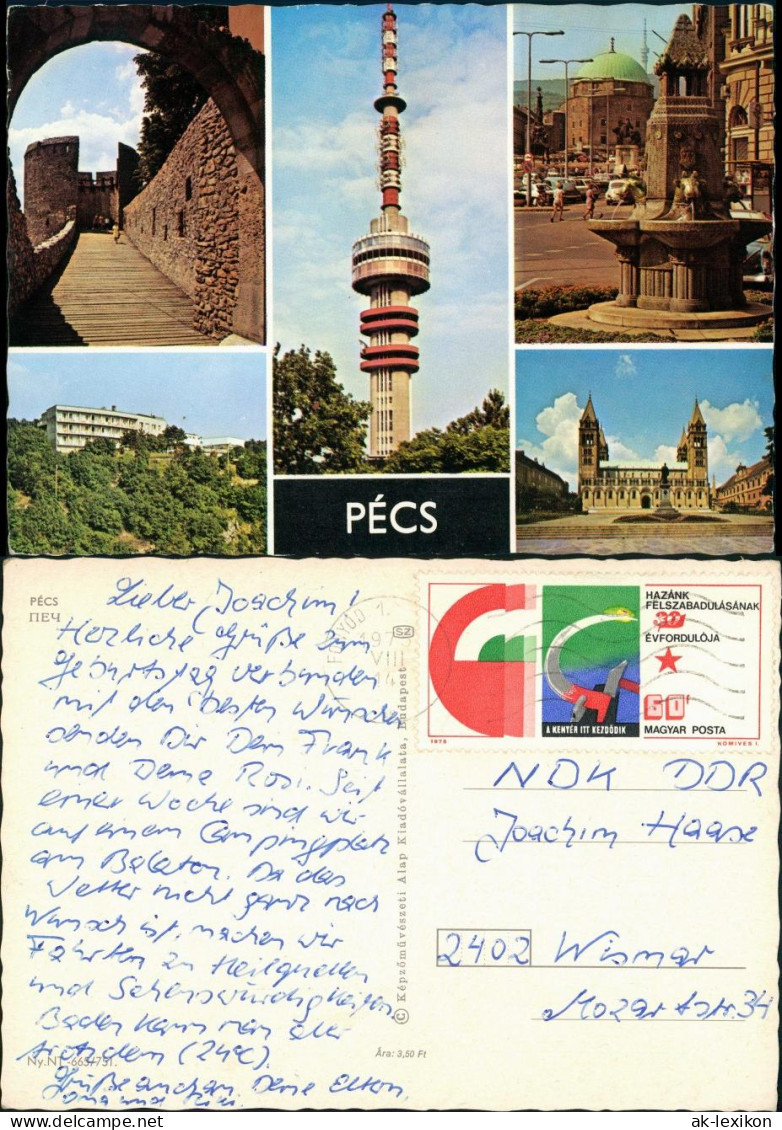 PÉCS
PÉCS
ПЕЧ
Lieber Joachim!
Herzliche Grüße zum
Geburtstag verbunden
mit den besten Wünschen
senden Dir Dein Frank
und Deine Rosi. Seit
einer Woche sind wir
auf einem Campingplatz
am Balaton. Da das
Wetter nicht ganz nach
Wunsch ist, machen wir
Fahrten zu Heilquellen
und Sehenswürdigkeiten.
Baden kann man aber
trotzdem (24°C).
Grüße an Deine Eltern,
und
Ny.NT.-665/751.
Ára: 3,50 Ft
© Képzőművészeti Alap Kiadóvállalata, Budapest
SZ
FONYÓD 1.
197
VIII
HAZÁNK
FELSZABADULÁSÁNAK
30
ÉVFORDULÓJA
60f
MAGYAR POSTA
A KENYÉR ITT KEZDŐDIK
1975
KÖMIVES I.
NDK DDR
Joachim Haase
2402 Wismar
Mozartstr. 34
ak-lexikon